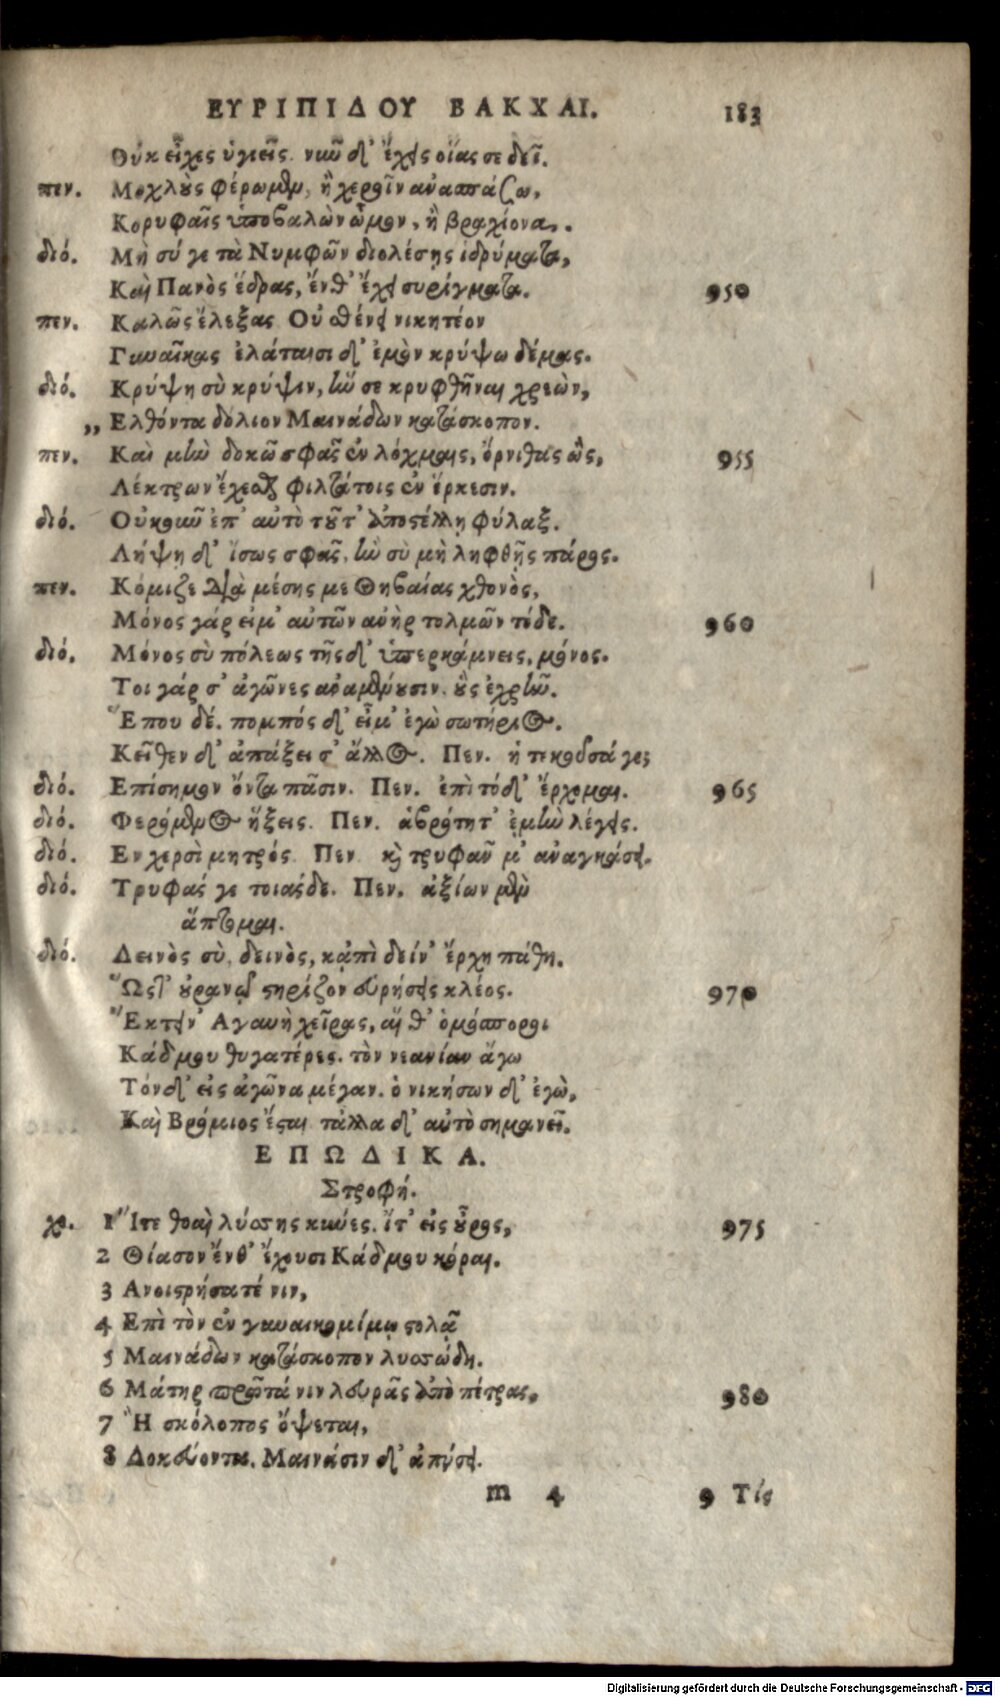 ΕΥΡΙΠΙΔΟΥ ΒΑΚΧΑΙ. 183
Οὐκ εἶχες ὑγιεῖς. νῦν δ' ἔχεις οἵας σε δεῖ.
πεν. Μοχλοὺς φέρωμεν, ἢ χεροῖν ἀνασπάσω,
Κορυφαῖς ὑποβαλὼν ὦμον, ἢ βραχίονα.
διό. Μὴ σύ γε τὰ Νυμφῶν διολέσῃς ἱδρύματα,
Καὶ Πανὸς ἕδρας, ἔνθ' ἔχει συρίγματα. 950
πεν. Καλῶς ἔλεξας. Οὐ σθένει νικητέον
Γυναῖκας ἐλάταισι δ' ἐμὸν κρύψω δέμας.
διό. Κρύψῃ σὺ κρύψιν, ἥν σε κρυφθῆναι χρεὼν,
,, Ελθόντα δόλιον Μαινάδων κατάσκοπον.
πεν. Καὶ μὴν δοκῶ σφᾶς ἐν λόχμαις, ὄρνιθας ὣς, 955
Λέκτρων ἔχεσθαι φιλτάτοις ἐν ἕρκεσιν.
διό. Οὐκοῦν ἐπ' αὐτὸ τοῦτ' ἀποστέλλῃ φύλαξ.
Λήψῃ δ' ἴσως σφᾶς, ἢν σὺ μὴ ληφθῇς πάρος.
πεν. Κόμιζε διὰ μέσης με Θηβαίας χθονὸς,
Μόνος γάρ εἰμ' αὐτῶν ἀνὴρ τολμῶν τόδε. 960
διό. Μόνος σὺ πόλεως τῆσδ' ὑπερκάμνεις, μόνος.
Τοι γάρ σ' ἀγῶνες ἀναμένουσιν, οὓς ἐχρῆν.
Ἕπου δέ. πομπός δ' εἶμ' ἐγὼ σωτήριος.
Κεῖθεν δ' ἀπάξει σ' ἄλλος. Πεν. ἡ τεκοῦσά γε;
διό. Επίσημον ὄντα πᾶσιν. Πεν. ἐπὶ τόδ' ἔρχομαι. 965
διό. Φερόμενος ἥξεις. Πεν. ἁβρότητ' ἐμὴν λέγεις.
διό. Εν χερσὶ μητρός. Πεν. καὶ τρυφᾶν μ' ἀναγκάσει.
διό. Τρυφάς γε τοιάσδε. Πεν. ἀξίων μὲν
ἅπτομαι.
διό. Δεινὸς σὺ, δεινὸς, κἀπὶ δείν' ἔρχῃ πάθη.
Ὥστ' οὐρανῷ στηρίζον εὑρήσεις κλέος. 970
Ἔκτειν' Αγαυὴ χεῖρας, αἵ θ' ὁμόσποροι
Κάδμου θυγατέρες. τὸν νεανίαν ἄγω
Τόνδ' εἰς ἀγῶνα μέγαν. ὁ νικήσων δ' ἐγὼ,
Καὶ Βρόμιος ἔσται. τἄλλα δ' αὐτὸ σημανεῖ.
ΕΠΩΔΙΚΑ.
Στροφή.
χο. 1 Ἴτε θοαὶ λύσσης κύνες. ἴτ' εἰς ὄρος, 975
2 Θίασον ἔνθ' ἔχουσι Κάδμου κόραι.
3 Ανοιστρήσατέ νιν,
4 Επὶ τὸν ἐν γυναικομίμῳ στολᾷ
5 Μαινάδων κατάσκοπον λυσσώδη.
6 Μάτηρ πρῶτά νιν λευρᾶς ἀπὸ πέτρας, 980
7 Ἢ σκόλοπος ὄψεται,
8 Δοκεύοντα. Μαινάσιν δ' ἀπύσει.
m 4 9 Τίς
Digitalisierung gefördert durch die Deutsche Forschungsgemeinschaft - DFG